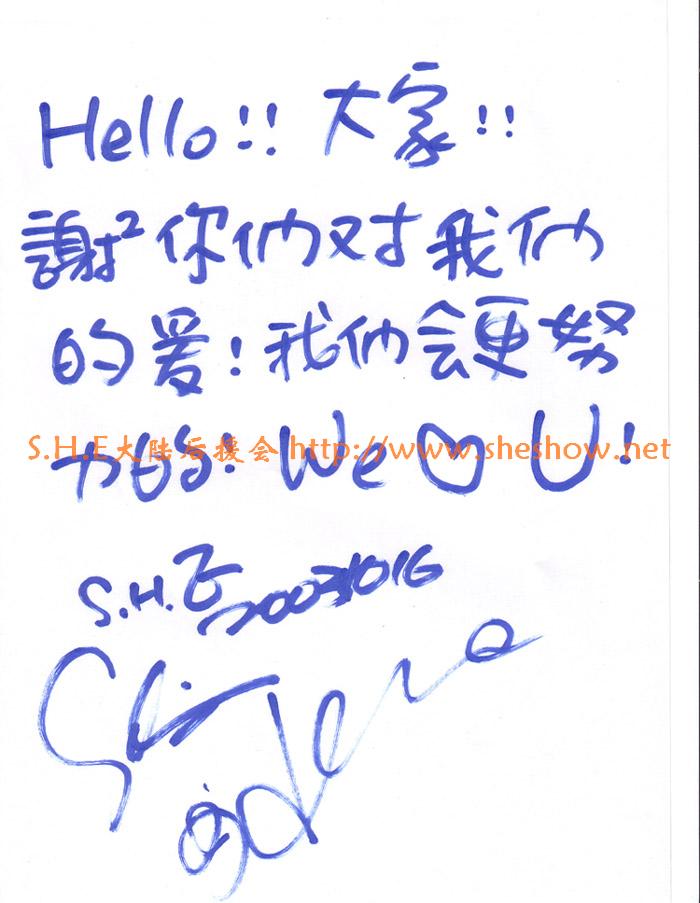 Hello!! 大家!!
謝²你們对我們
的爱!我們会更努
力的! We ♡ U!
S.H.E大陆后援会 http://www.sheshow.net
S.H.E
20031016